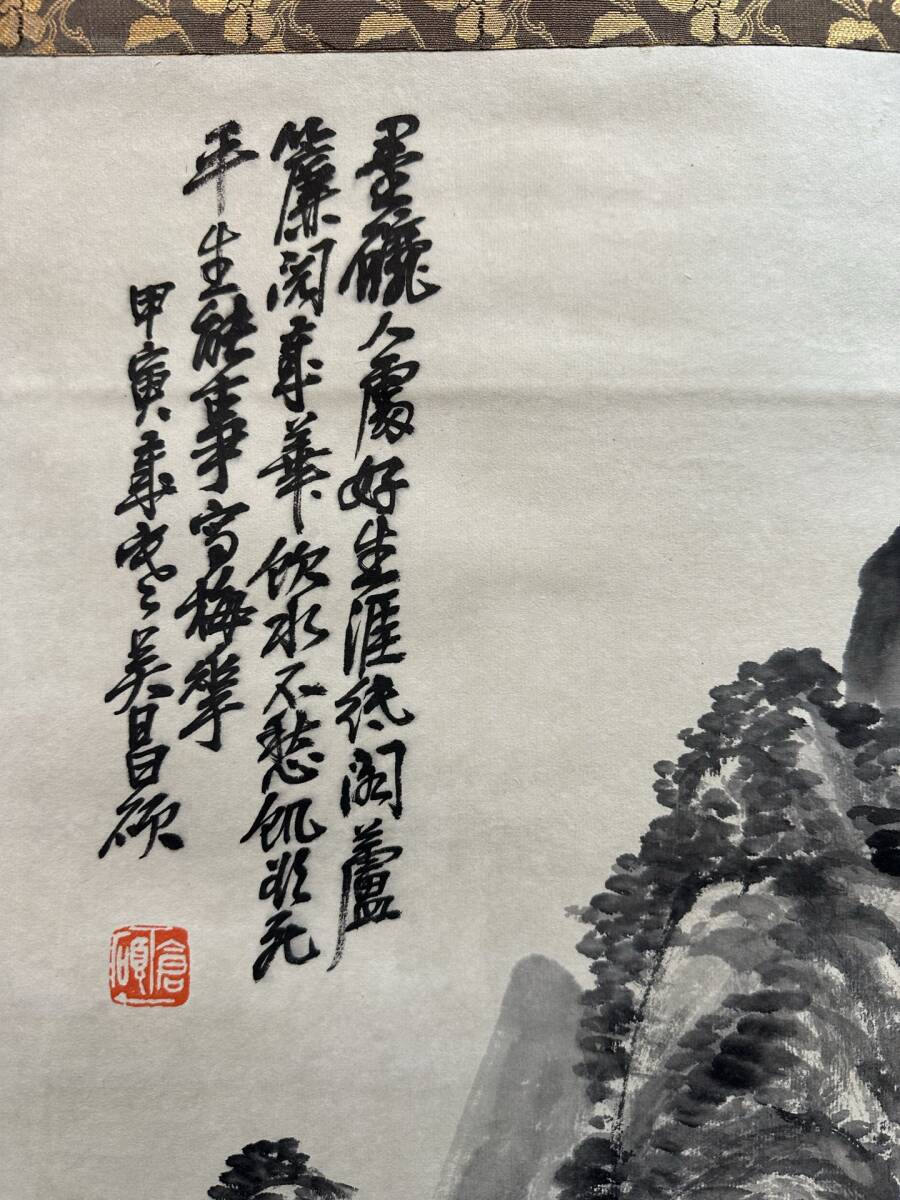 墨磨人處好生涯紙閣蘆
簾閱歲華飲水不愁飢欲死
平生能事寫梅華
甲寅歲寒吳昌碩
倉碩